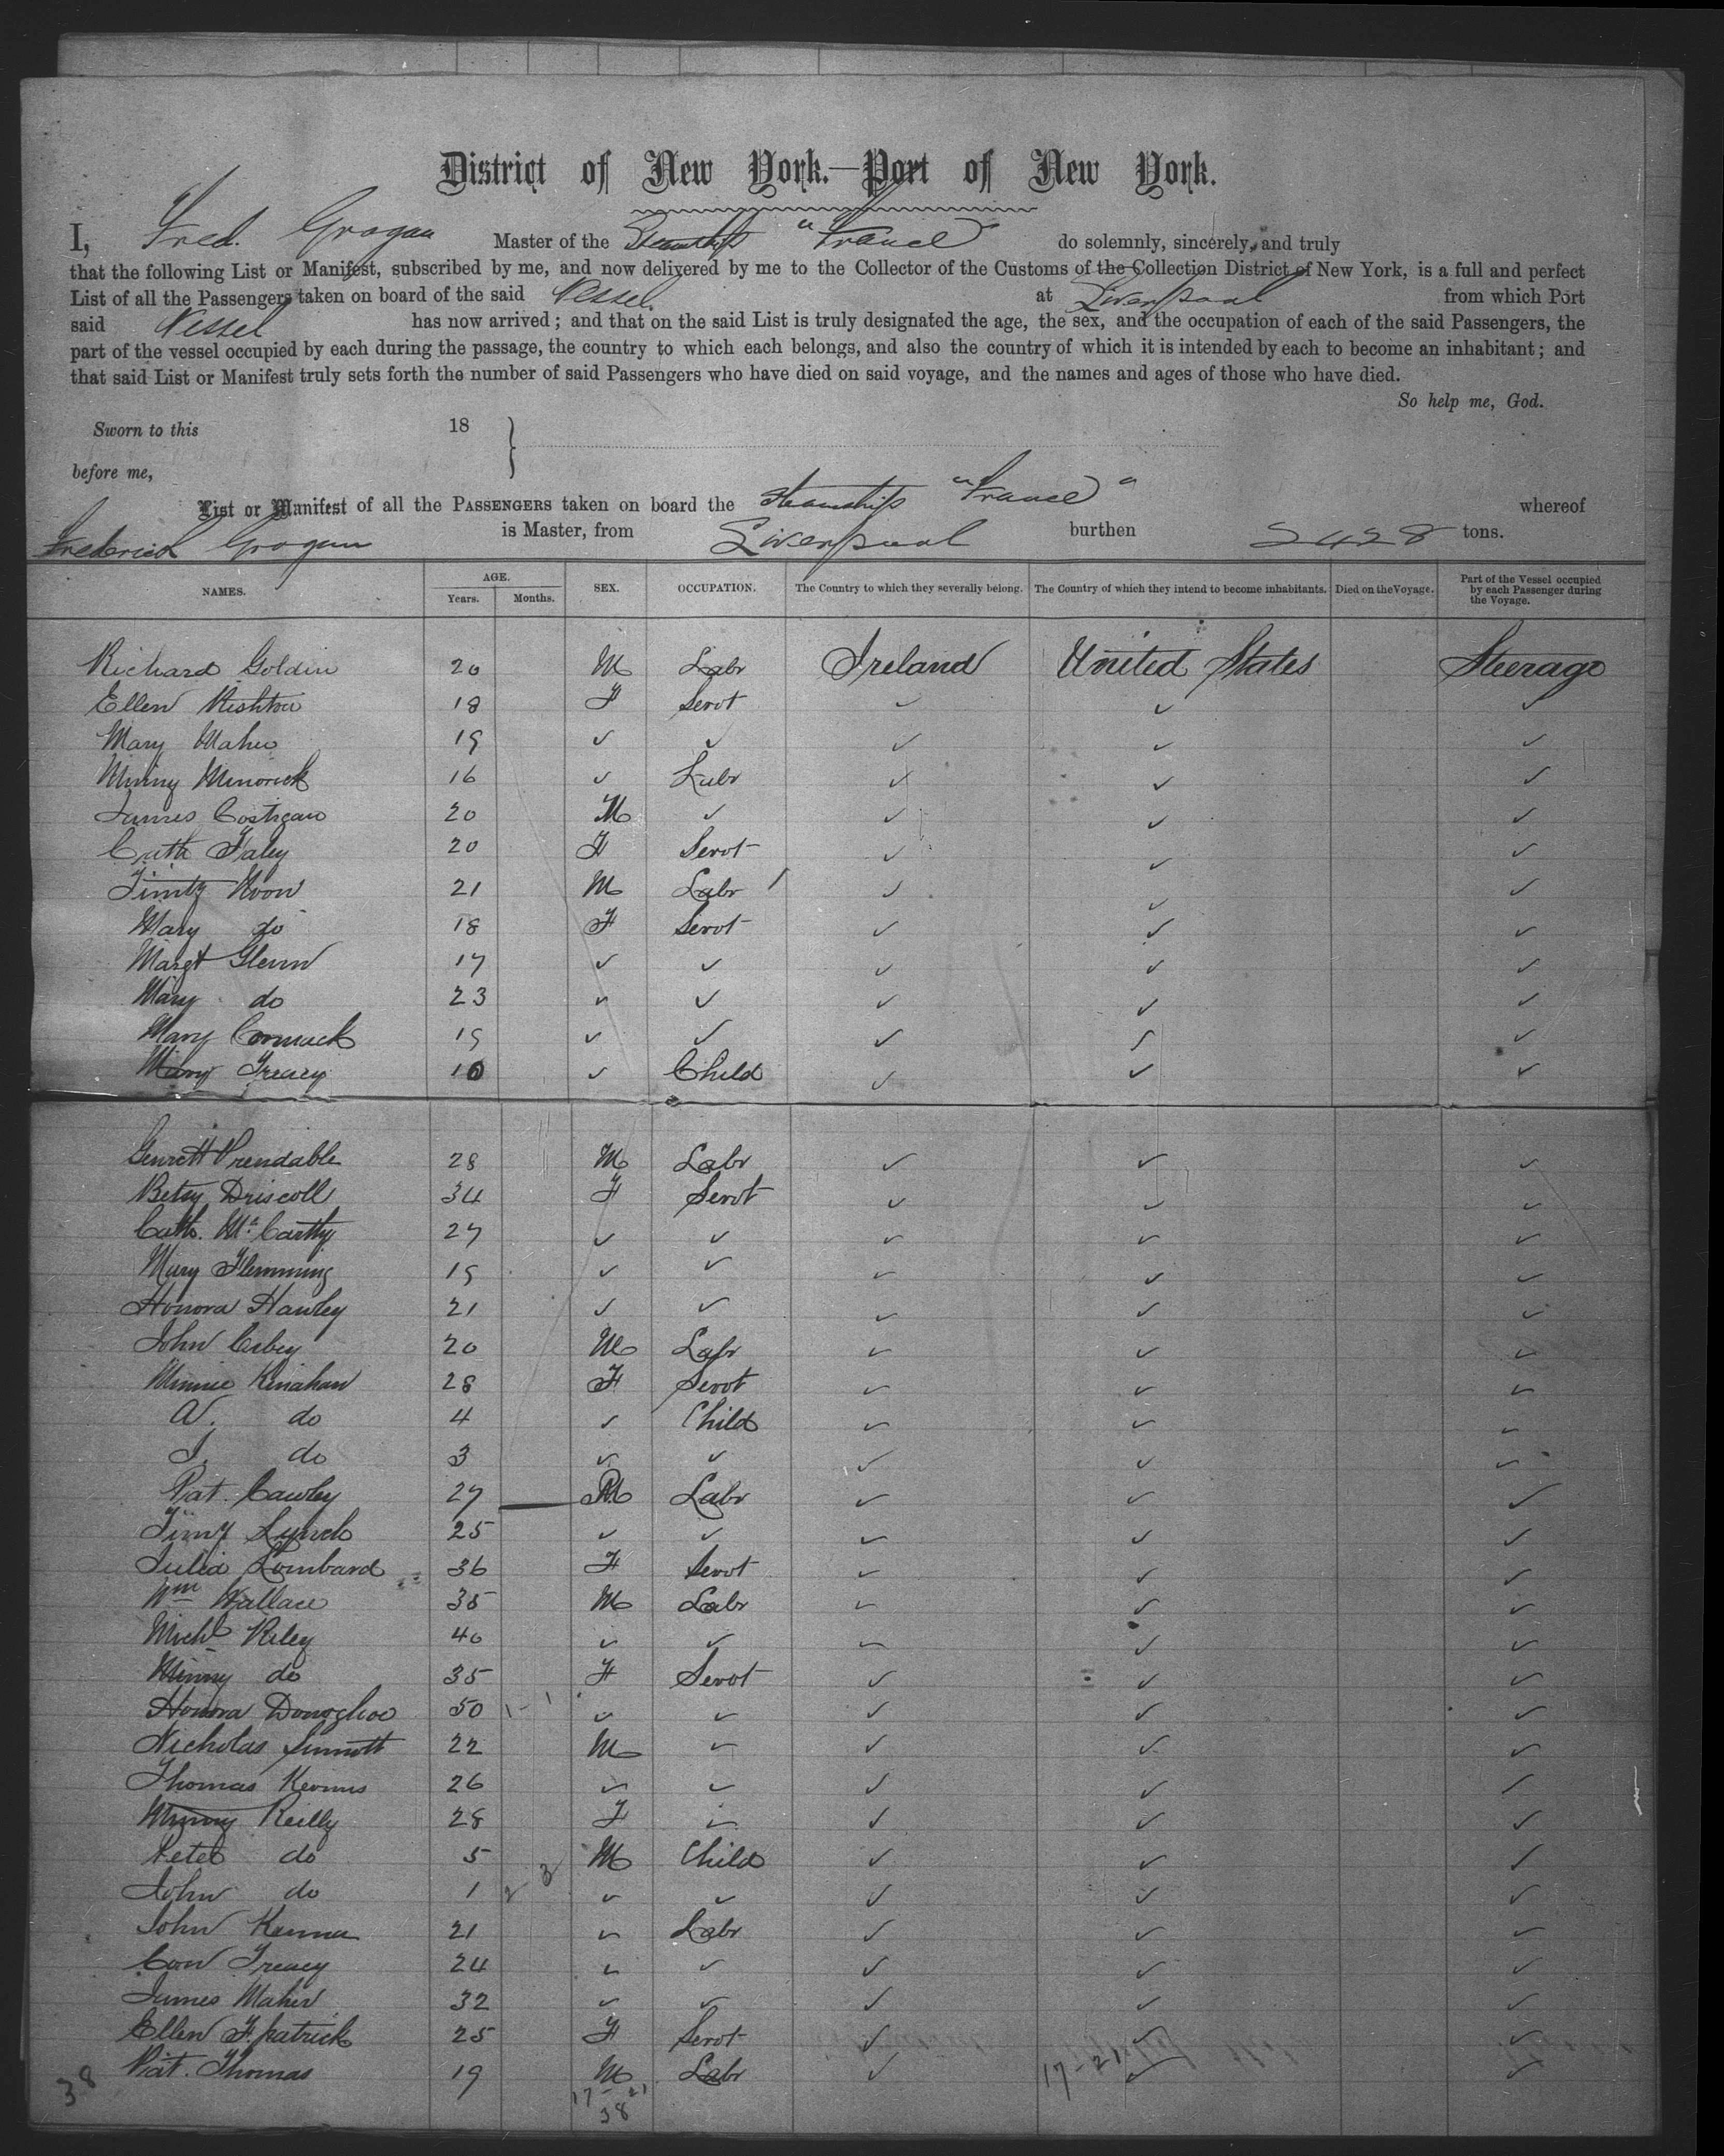 District of New York.—Port of New York.
I, Fred. Grogan Master of the Steamship "France" do solemnly, sincerely, and truly
that the following List or Manifest, subscribed by me, and now delivered by me to the Collector of the Customs of the Collection District of New York, is a full and perfect
List of all the Passengers taken on board of the said Vessel at Liverpool from which Port
said Vessel has now arrived; and that on the said List is truly designated the age, the sex, and the occupation of each of the said Passengers, the
part of the vessel occupied by each during the passage, the country to which each belongs, and also the country of which it is intended by each to become an inhabitant; and
that said List or Manifest truly sets forth the number of said Passengers who have died on said voyage, and the names and ages of those who have died.
So help me, God.
Sworn to this 18
before me,
List or Manifest of all the PASSENGERS taken on board the Steamship "France" whereof
Frederick Grogan is Master, from Liverpool burthen 2428 tons.
NAMES. AGE. Years. Months. SEX. OCCUPATION. The Country to which they severally belong. The Country of which they intend to become inhabitants. Died on the Voyage. Part of the Vessel occupied by each Passenger during the Voyage.
Richard Goldin 20 M Labr Ireland United States Steerage
Ellen Rishton 18 F Servt ✓ ✓ ✓
Mary Maher 19 ✓ ✓ ✓ ✓ ✓
Minny 16 ✓ Labr ✓ ✓ ✓
James Costigan 20 M ✓ ✓ ✓ ✓
Cath Faley 20 F Servt ✓ ✓ ✓
Timty Noon 21 M Labr ✓ ✓ ✓
Mary do 18 F Servt ✓ ✓ ✓
Margt Glenn 17 ✓ ✓ ✓ ✓ ✓
Mary do 23 ✓ ✓ ✓ ✓ ✓
Mary Cormack 19 ✓ ✓ ✓ ✓ ✓
Mary Treacy 10 ✓ Child ✓ ✓ ✓
Garrett Prendable 28 M Labr ✓ ✓ ✓
Betsy Driscoll 34 F Servt ✓ ✓ ✓
Cath. McCarthy 27 ✓ ✓ ✓ ✓ ✓
Mary Flemming 19 ✓ ✓ ✓ ✓ ✓
Honora Hawley 21 ✓ ✓ ✓ ✓ ✓
John Corbey 20 M Labr ✓ ✓ ✓
Minnie Kinahan 28 F Servt ✓ ✓ ✓
N. do 4 ✓ Child ✓ ✓ ✓
J. do 3 ✓ ✓ ✓ ✓ ✓
Pat. Cawley 27 M Labr ✓ ✓ ✓
Timy Lynch 25 ✓ ✓ ✓ ✓ ✓
Julia Lombard 36 F Servt ✓ ✓ ✓
Wm Wallace 35 M Labr ✓ ✓ ✓
Michl Riley 40 ✓ ✓ ✓ ✓ ✓
Minny do 35 F Servt ✓ ✓ ✓
Honora Donoghoe 50 ✓ ✓ ✓ ✓ ✓
Nicholas Sinnott 22 M ✓ ✓ ✓ ✓
Thomas Kevins 26 ✓ ✓ ✓ ✓ ✓
Minny Reilly 28 F ✓ ✓ ✓ ✓
Peter do 5 M Child ✓ ✓ ✓
John do 1 ✓ ✓ ✓ ✓ ✓
John Kenna 21 ✓ Labr ✓ ✓ ✓
Con Treacy 24 ✓ ✓ ✓ ✓ ✓
James Maher 32 ✓ ✓ ✓ ✓ ✓
Ellen F.patrick 25 F Servt ✓ ✓ ✓
Pat. Thomas 19 M Labr ✓ ✓ ✓
38 17-21 17-21
38